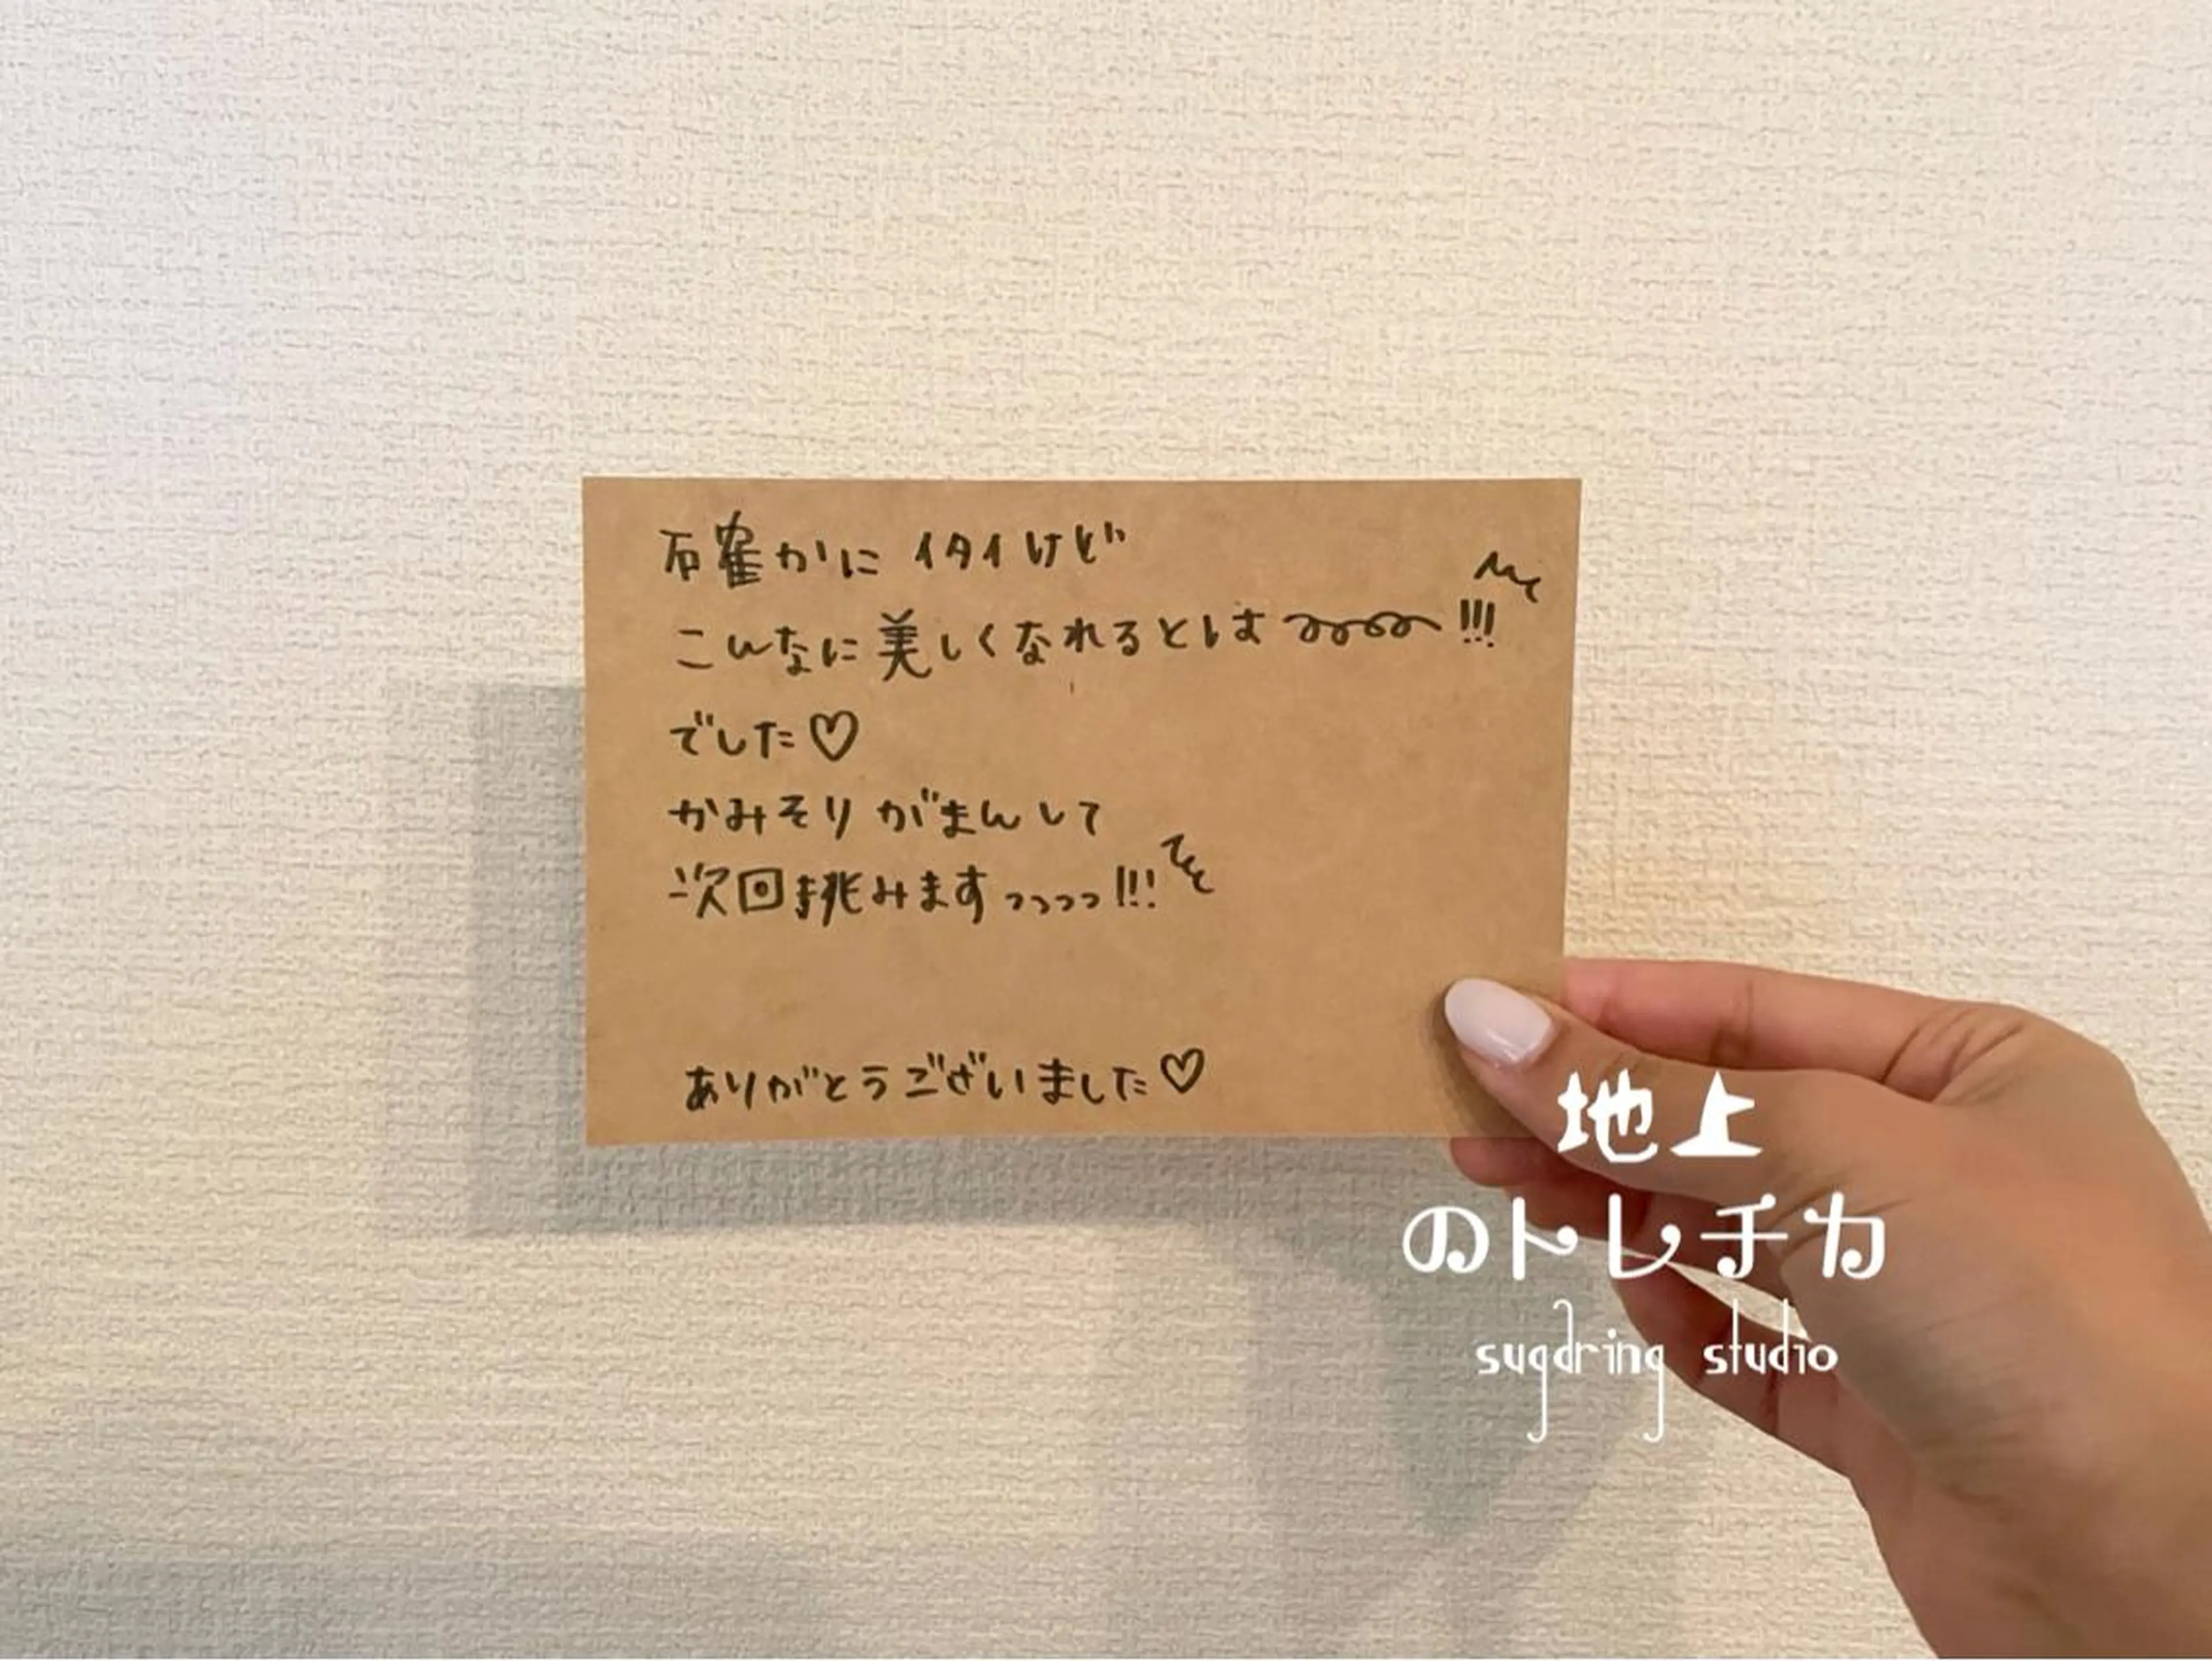 確かにイタイけど
こんなに美しくなれるとは〜〜〜〜!!!
でした♡
かみそりがまんして
次回挑みますっっっっ!!!
ありがとうございました♡
地上
のトレチカ
sugdring studio